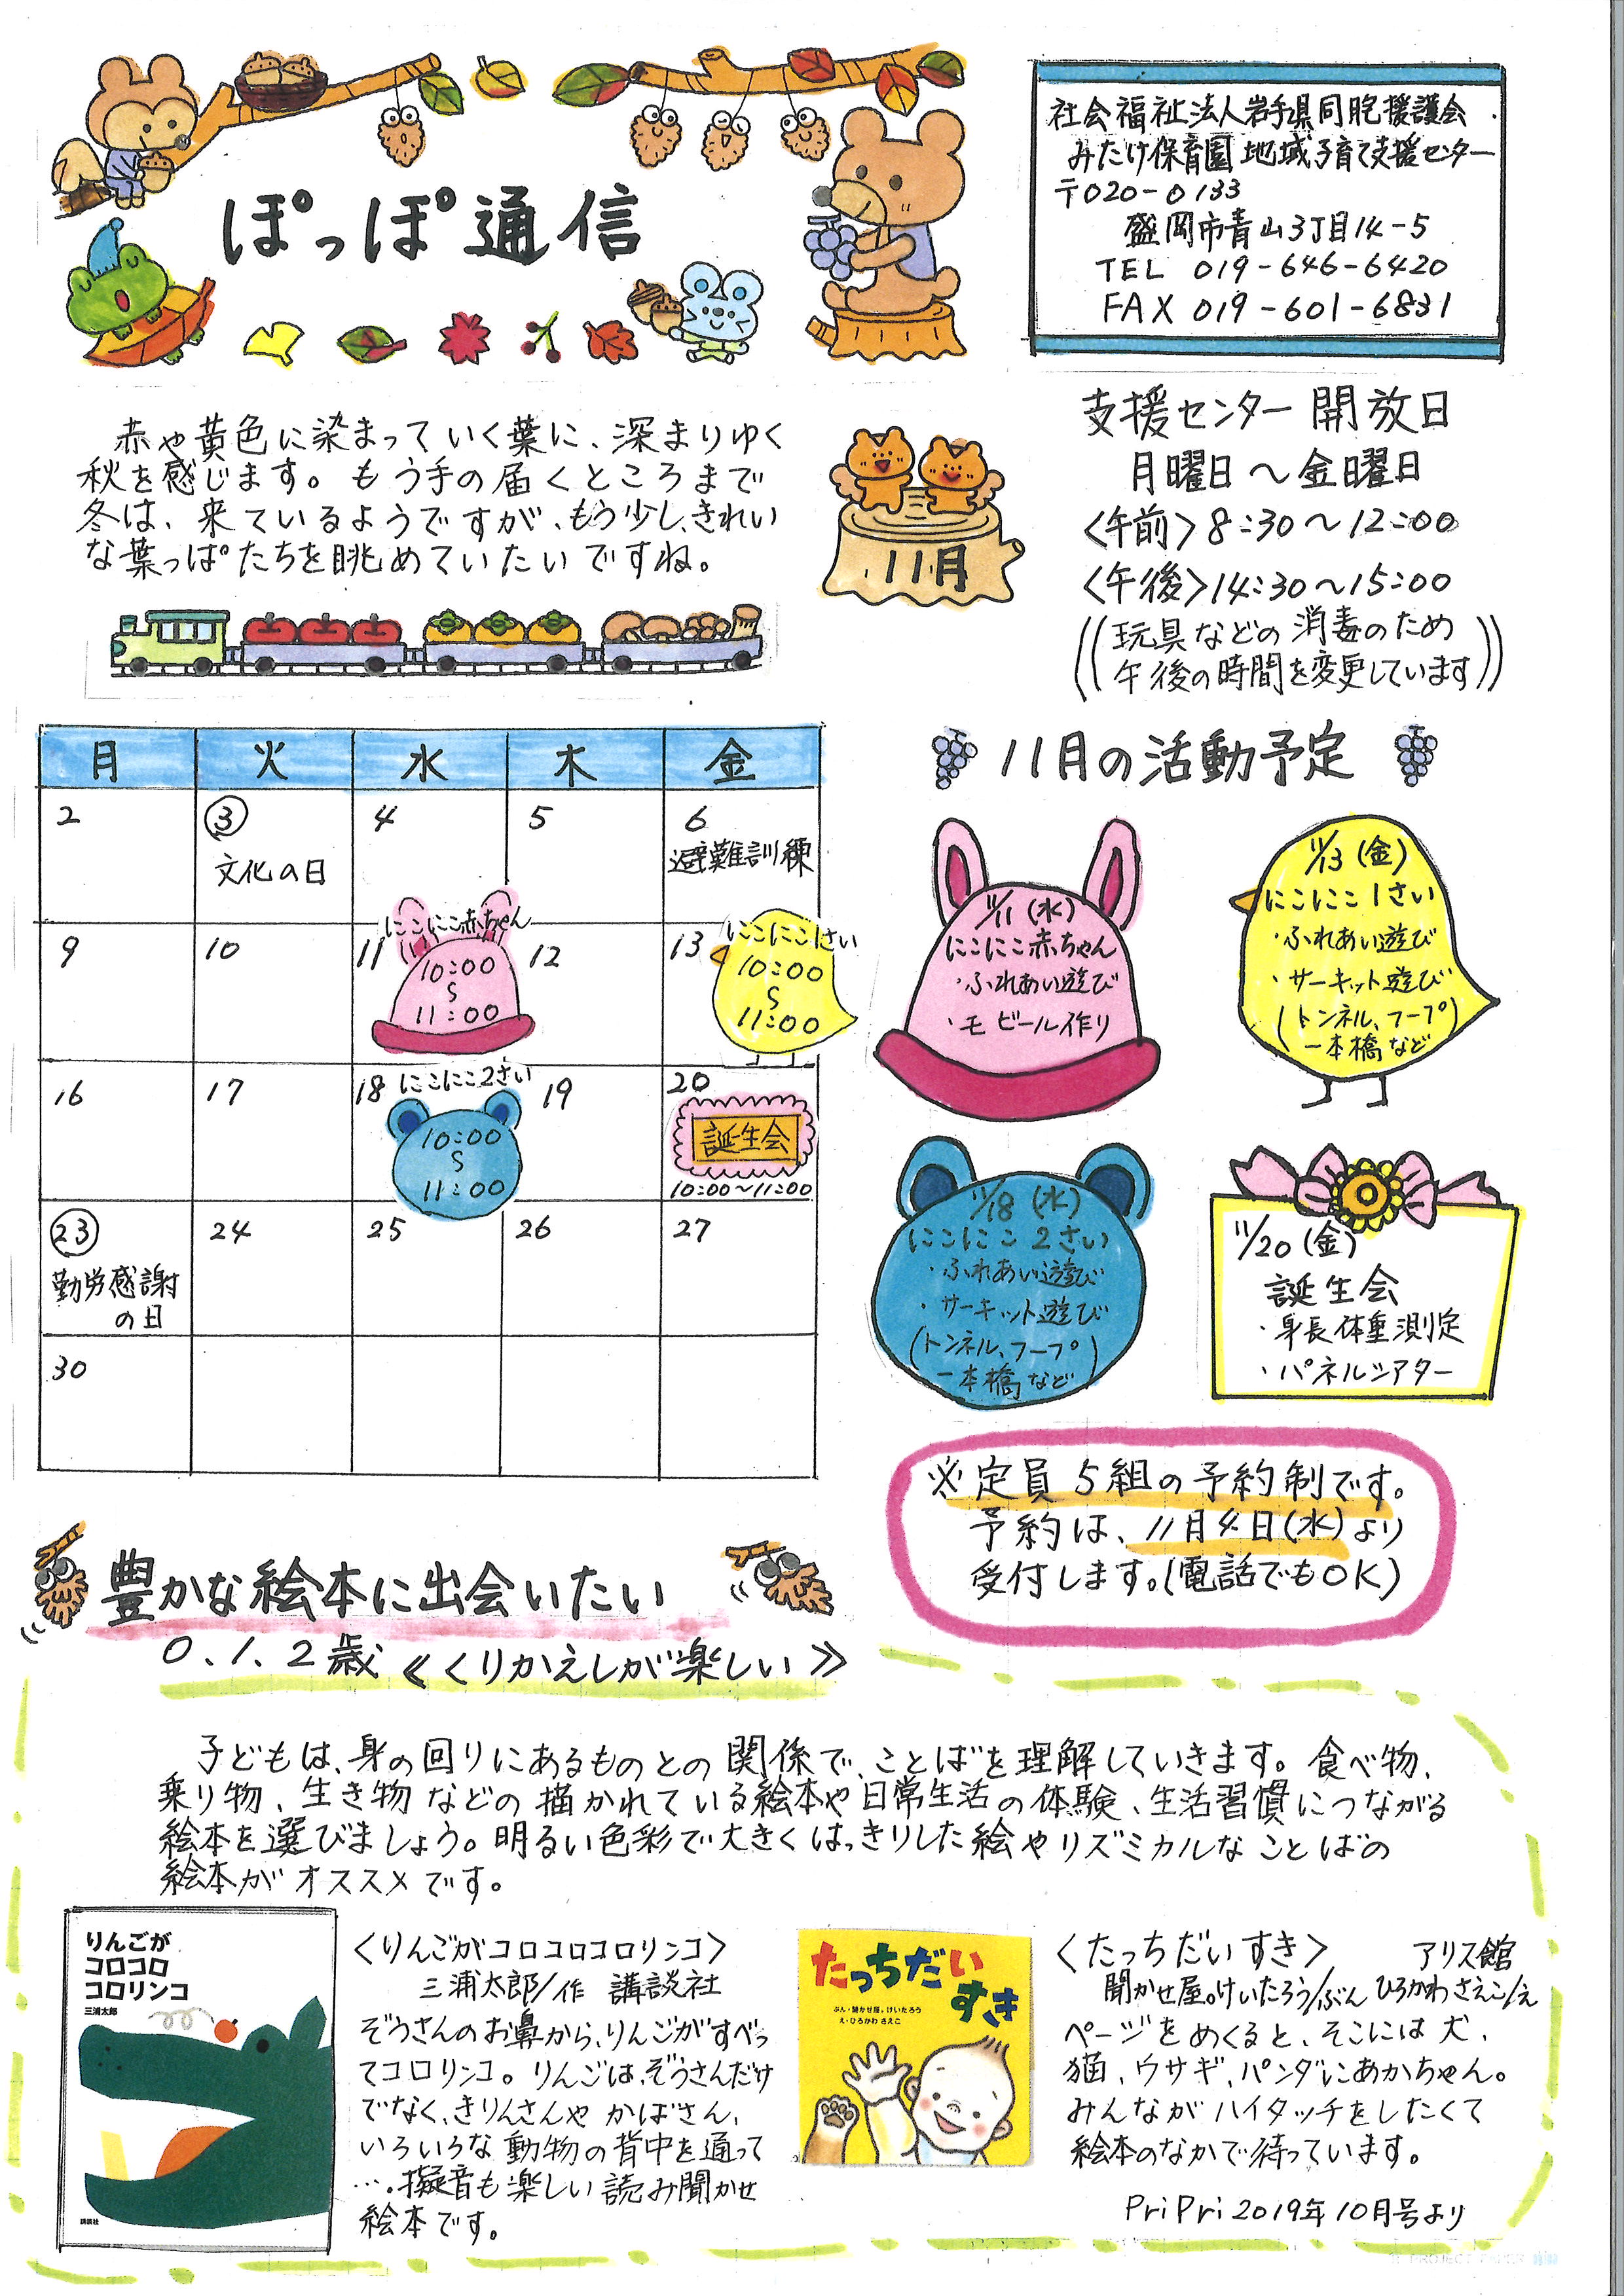 ぽっぽ通信
社会福祉法人岩手県同胞援護会
みたけ保育園 地域子育て支援センター
〒020-0133
盛岡市青山3丁目14-5
TEL 019-646-6420
FAX 019-601-6831
赤や黄色に染まっていく葉に、深まりゆく
秋を感じます。もう手の届くところまで
冬は、来ているようですが、もう少し、きれい
な葉っぱたちを眺めていたいですね。
11月
支援センター開放日
月曜日～金曜日
〈午前〉8:30～12:00
〈午後〉14:30～15:00
((玩具などの消毒のため
午後の時間を変更しています))
月 火 水 木 金
2 ③ 4 5 6
文化の日 避難訓練
9 10 11 12 13
にこにこ赤ちゃん
10:00
～
11:00
にこにこ1さい
10:00
～
11:00
16 17 18 19 20
にこにこ2さい
10:00
～
11:00
誕生会
10:00～11:00
㉓ 24 25 26 27
勤労感謝
の日
30
11月の活動予定
11/11(水)
にこにこ赤ちゃん
・ふれあい遊び
・モビール作り
11/13(金)
にこにこ1さい
・ふれあい遊び
・サーキット遊び
(トンネル、フープ
一本橋など)
11/18(水)
にこにこ2さい
・ふれあい遊び
・サーキット遊び
(トンネル、フープ
一本橋など)
11/20(金)
誕生会
・身長体重測定
・パネルシアター
※定員5組の予約制です。
予約は、11月4日(水)より
受付します。(電話でもOK)
豊かな絵本に出会いたい
0、1、2歳《くりかえしが楽しい》
子どもは、身の回りにあるものとの関係で、ことばを理解していきます。食べ物、
乗り物、生き物などの描かれている絵本や日常生活の体験、生活習慣につながる
絵本を選びましょう。明るい色彩で大きくはっきりした絵やリズミカルなことばの
絵本がオススメです。
りんごが
コロコロ
コロリンコ
三浦太郎
講談社
〈りんごがコロコロコロリンコ〉
三浦太郎/作 講談社
ぞうさんのお鼻から、りんごがすべっ
てコロリンコ。りんごは、ぞうさんだけ
でなく、きりんさんやかばさん、
いろいろな動物の背中を通って
…。擬音も楽しい読み聞かせ
絵本です。
たっちだい
すき
ぶん・聞かせ屋。けいたろう
え・ひろかわ さえこ
〈たっちだいすき〉 アリス館
聞かせ屋。けいたろう/ぶん ひろかわさえこ/え
ページをめくると、そこには犬、
猫、ウサギ、パンダにあかちゃん。
みんながハイタッチをしたくて
絵本のなかで待っています。
PriPri 2019年10月号より